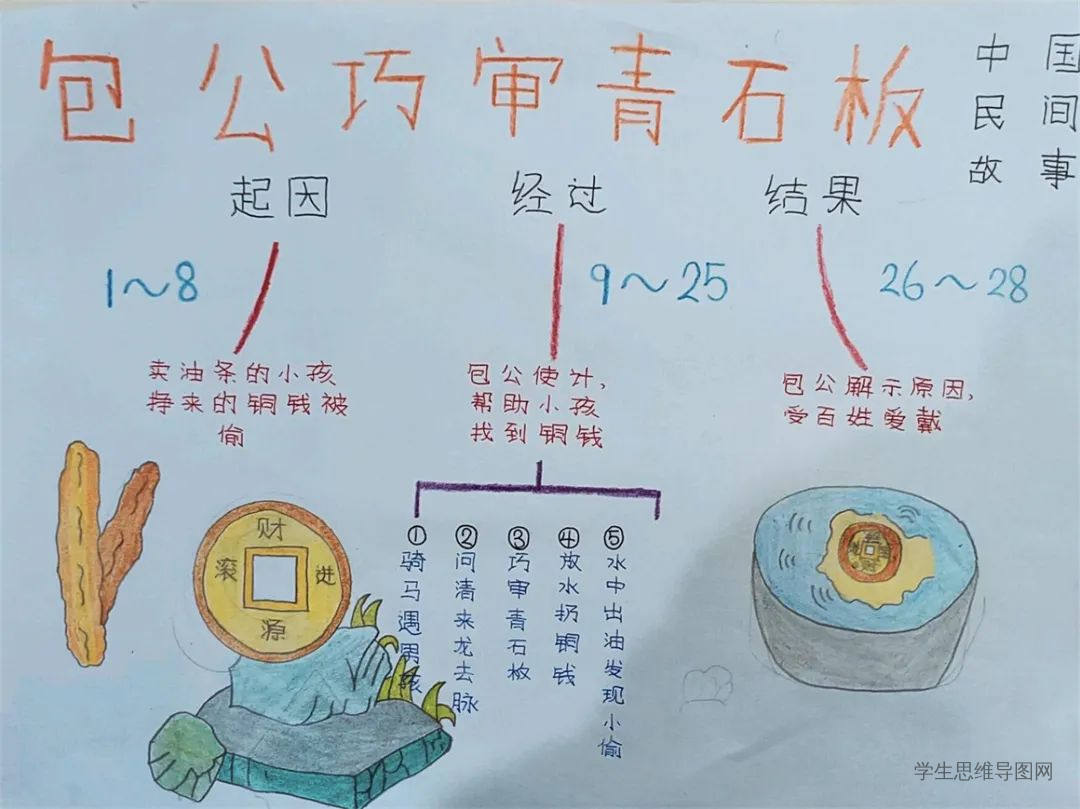 包公巧审青石板
中国
民间
故事
起因
经过
结果
1~8
9~25
26~28
卖油条的小孩
挣来的铜钱被
偷
包公使计,
帮助小孩
找到铜钱
包公解示原因,
受百姓爱戴
①骑马遇男孩
②问清来龙去脉
③巧审青石板
④放水扔铜钱
⑤水中出油发现小偷
财
滚 进
源
学生思维导图网